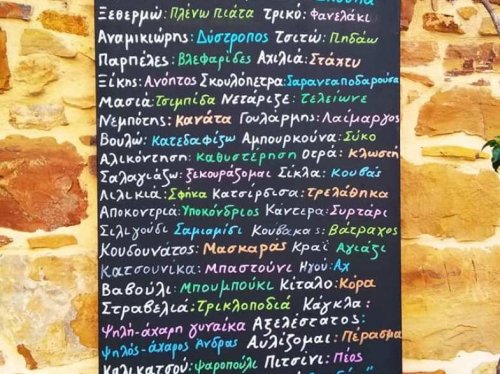 Ξεθερμώ: Πλένω πιάτα τρικό: Φανελάκι
Αναμικιώρης: Δύστροπος Τσιτώ: Πηδάω
Παρπέλες: Βλεφαρίδες Αχιλιά: Στάχτυ
Ξίκης: Ανόητος Σκουλόπετρα: Σαρανταποδαρούσα
Μασιά: Τσιμπίδα Νετάριζε: τελείωνε
Νεμπότης: Κανάτα Γουλάρμης: Λαίμαργος
Βουλώ: Κατεδαφίζω Αμπουρκούνα: Σύκο
Αλικόντηση: Καθυστέρηση Οτρά: Κλωστή
Σαλαγιάζω: ξεκουράζομαι Σίκλα: Κουβάς
Λιλικιά: Σφήκα Κατσίρδισα: τρελάθηκα
Αποκοντριά: Υποκόνδριος Κάντερα: Συρτάρι
Σιλιγούδι Σαμιαμίσι Κουβακας: Βάτραχος
Κουδουνάτος: Μασκαράς Κραϊ Αγιάζι
Κατσουνίκα: Μπαστούνι Ηγού: Αχ
Βαβούλι: Μπουμπούκι Κίταλο: Κόρα
Στραβελιά: Τρικλοποδιά Κάγκλα:
Ψηλή-άχαρη γυναίκα Ατζελέστατος:
Ψηλός-άχαρος Άνδρας Αυλίζομαι: Πέρασμα
Καλικατσού: Ψαροπούλι Πιτσίνι: Πέος